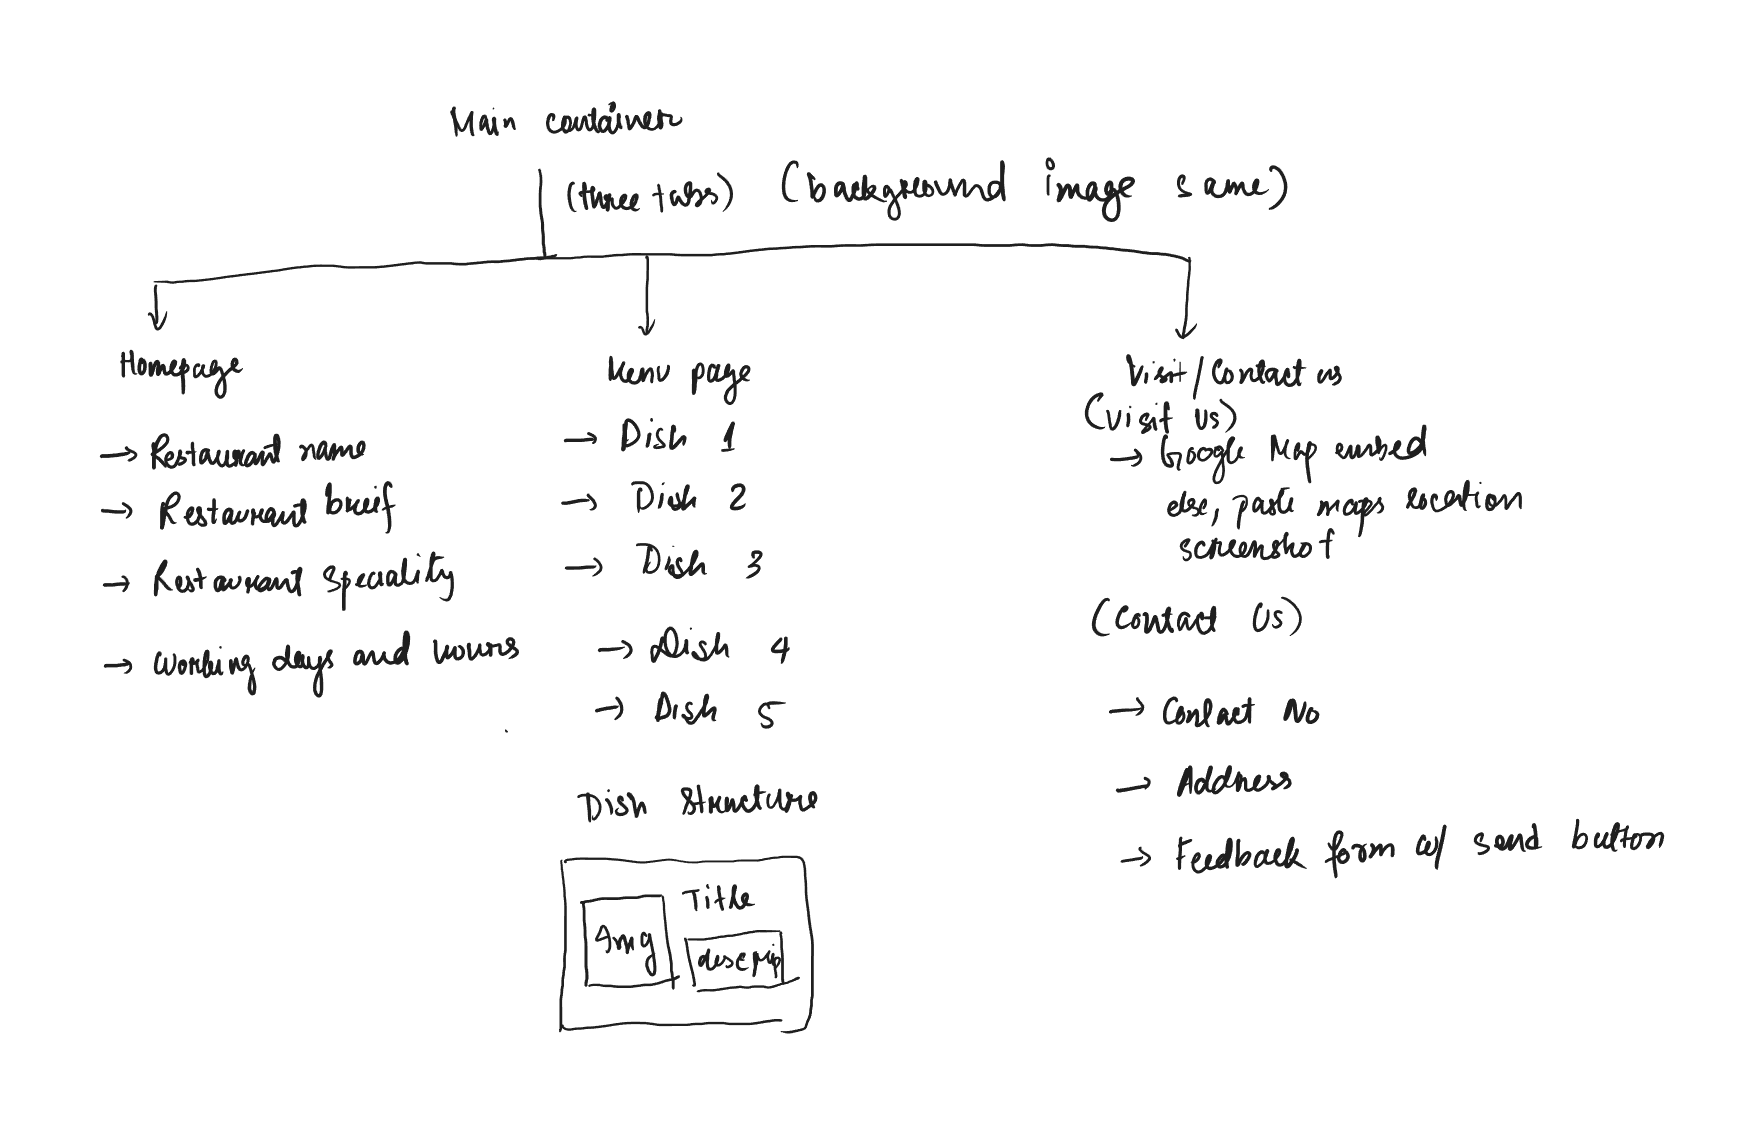 Main container
(three tabs) (background image same)
Homepage
→ Restaurant name
→ Restaurant brief
→ Restaurant speciality
→ Working days and hours
Menu page
→ Dish 1
→ Dish 2
→ Dish 3
→ Dish 4
→ Dish 5
Dish structure
Img
Title
descrip
Visit/Contact us
(Visit Us)
→ Google Map embed
else, paste maps location
screenshot
(Contact Us)
→ Contact No
→ Address
→ Feedback form w/ send button